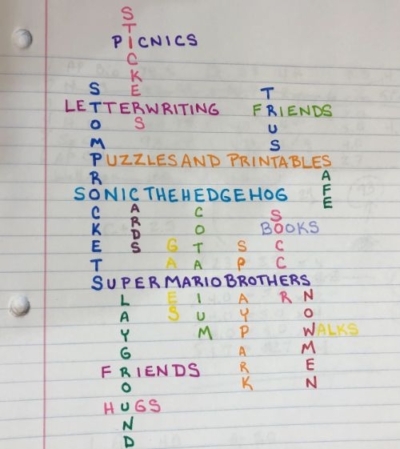 STICKERS
PICNICS
STOMPROCKETS
TRUST
LETTERWRITING
FRIENDS
PUZZLES AND PRINTABLES
SAFE
SONIC THE HEDGEHOG
CARDS
ECOTARIUM
SOCCER
BOOKS
GAMES
SPRAYPARK
SUPER MARIO BROTHERS
PLAYGROUND
SNOWMEN
WALKS
FRIENDS
HUGS